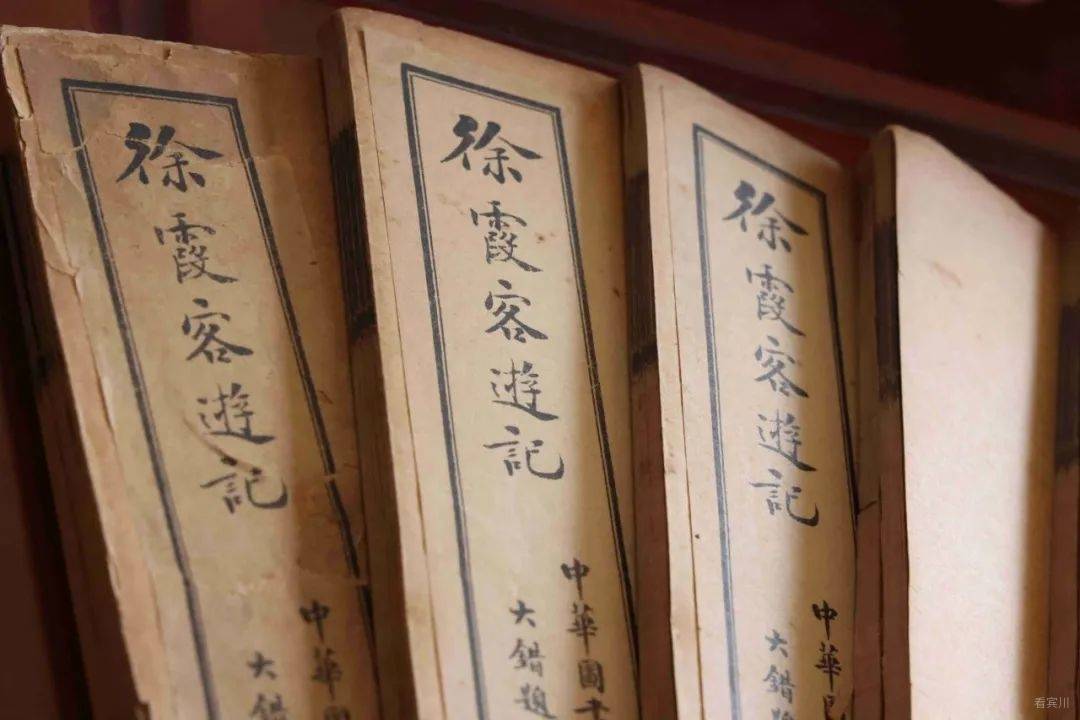 徐霞客遊記
中華
大錯
徐霞客遊記
中華國
大錯題
徐霞客遊記
中華
大錯題
看宾川